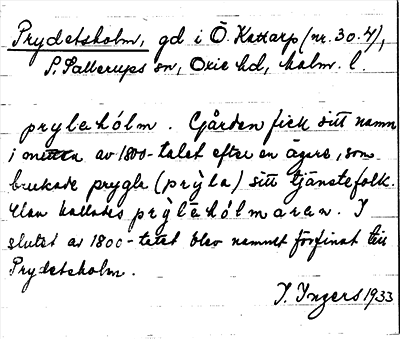 Prydetsholm, gd i Ö. Kattarp (nr. 30.4),
S. Sallerups sn, Oxie hd, Malm. l.
prylehólm. Gården fick sitt namn
i mitten av 1800-talet efter en ägare, som
brukade prygla (prỳla) sitt tjänstefolk.
Han kallades prỳlehólmaren. I
slutet av 1800-talet blev namnet förfinat till
Prydetsholm.
I. Ingers 1933